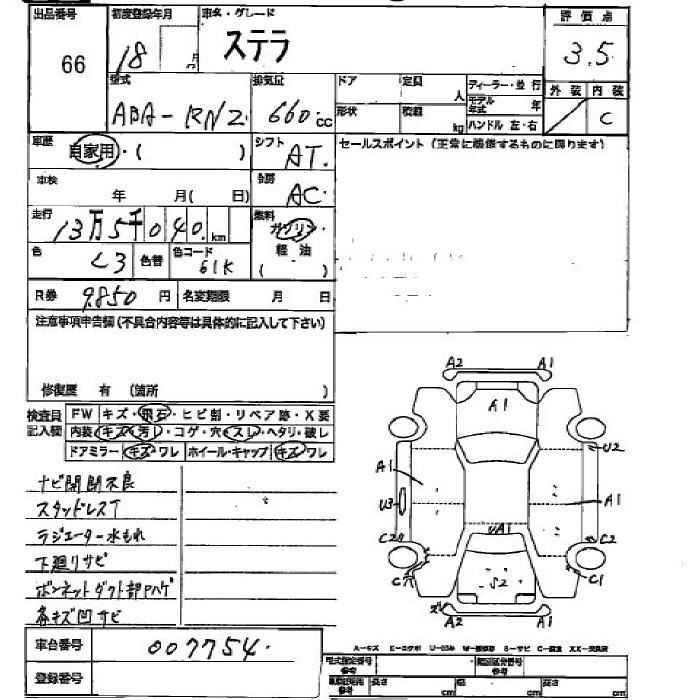 出品番号 初度登録年月 車名・グレード 評価点
66 18 年 月 ステラ 3.5
型式 排気量 ドア 定員 人 ディーラー・並行 外装 内装
ABA-RN2 660cc 形状 積載 kg モデル年式 年 C
ハンドル 左・右
車歴 自家用・( ) シフト AT セールスポイント (正常に機能するものに限ります)
車検 年 月( 日) 冷房 AC
走行 13万5千040 km 燃料 ガソリン・軽油 ( )
色 色替 色コード 61K
R券 9850 円 名変期限 月 日
注意事項申告欄 (不具合内容等は具体的に記入して下さい)
修復歴 有 (箇所 )
検査員記入欄 FW キズ・飛石・ヒビ割・リペア跡・X要
内装 キズ・汚レ・コゲ・穴・スレ・ヘタリ・破レ
ドアミラー キズ・ワレ ホイール・キャップ キズ・ワレ
ナビ開閉不良
スタッドレスT
ラジエーター水もれ
下廻りサビ
ボンネットダクト部Pハゲ
各キズ凹サビ
A2 A1
A1
U2
A1
U3 A1
UA1
C2 C2
C穴 S2 C1
A2 A1
A-キズ E-エクボ U-凹み W-補修跡 S-サビ C-腐食 XX-交換済
車台番号 007754
登録番号
型式指定番号 参考 類別区分番号 参考
参考 長さ cm 幅 cm 高さ cm